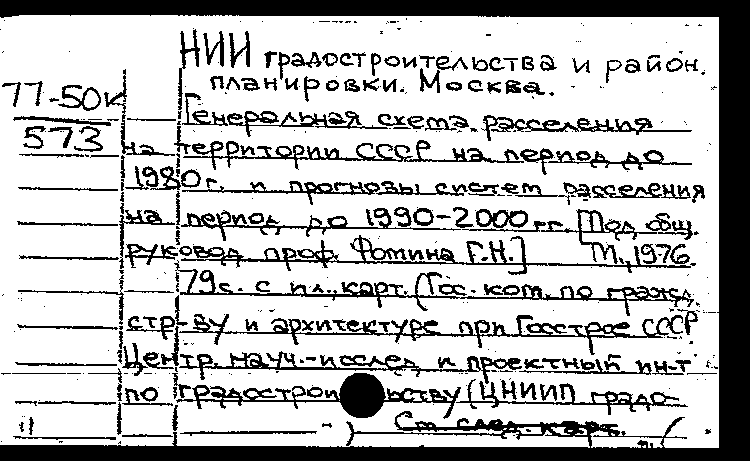 НИИ градостроительства и район.
планировки. Москва.
77-50к
573
Генеральная схема расселения
на территории СССР на период до
1980г. и прогнозы систем расселения
на период до 1990-2000гг. [Под общ.
руковод. проф. Фомина Г.Н.] М., 1976.
79с. с ил., карт. (Гос. ком. по гражд.
стр-ву и архитектуре при Госстрое СССР
Центр. науч.-исслед. и проектный ин-т
по градостроительству (ЦНИИП градо-
См. след. карт.